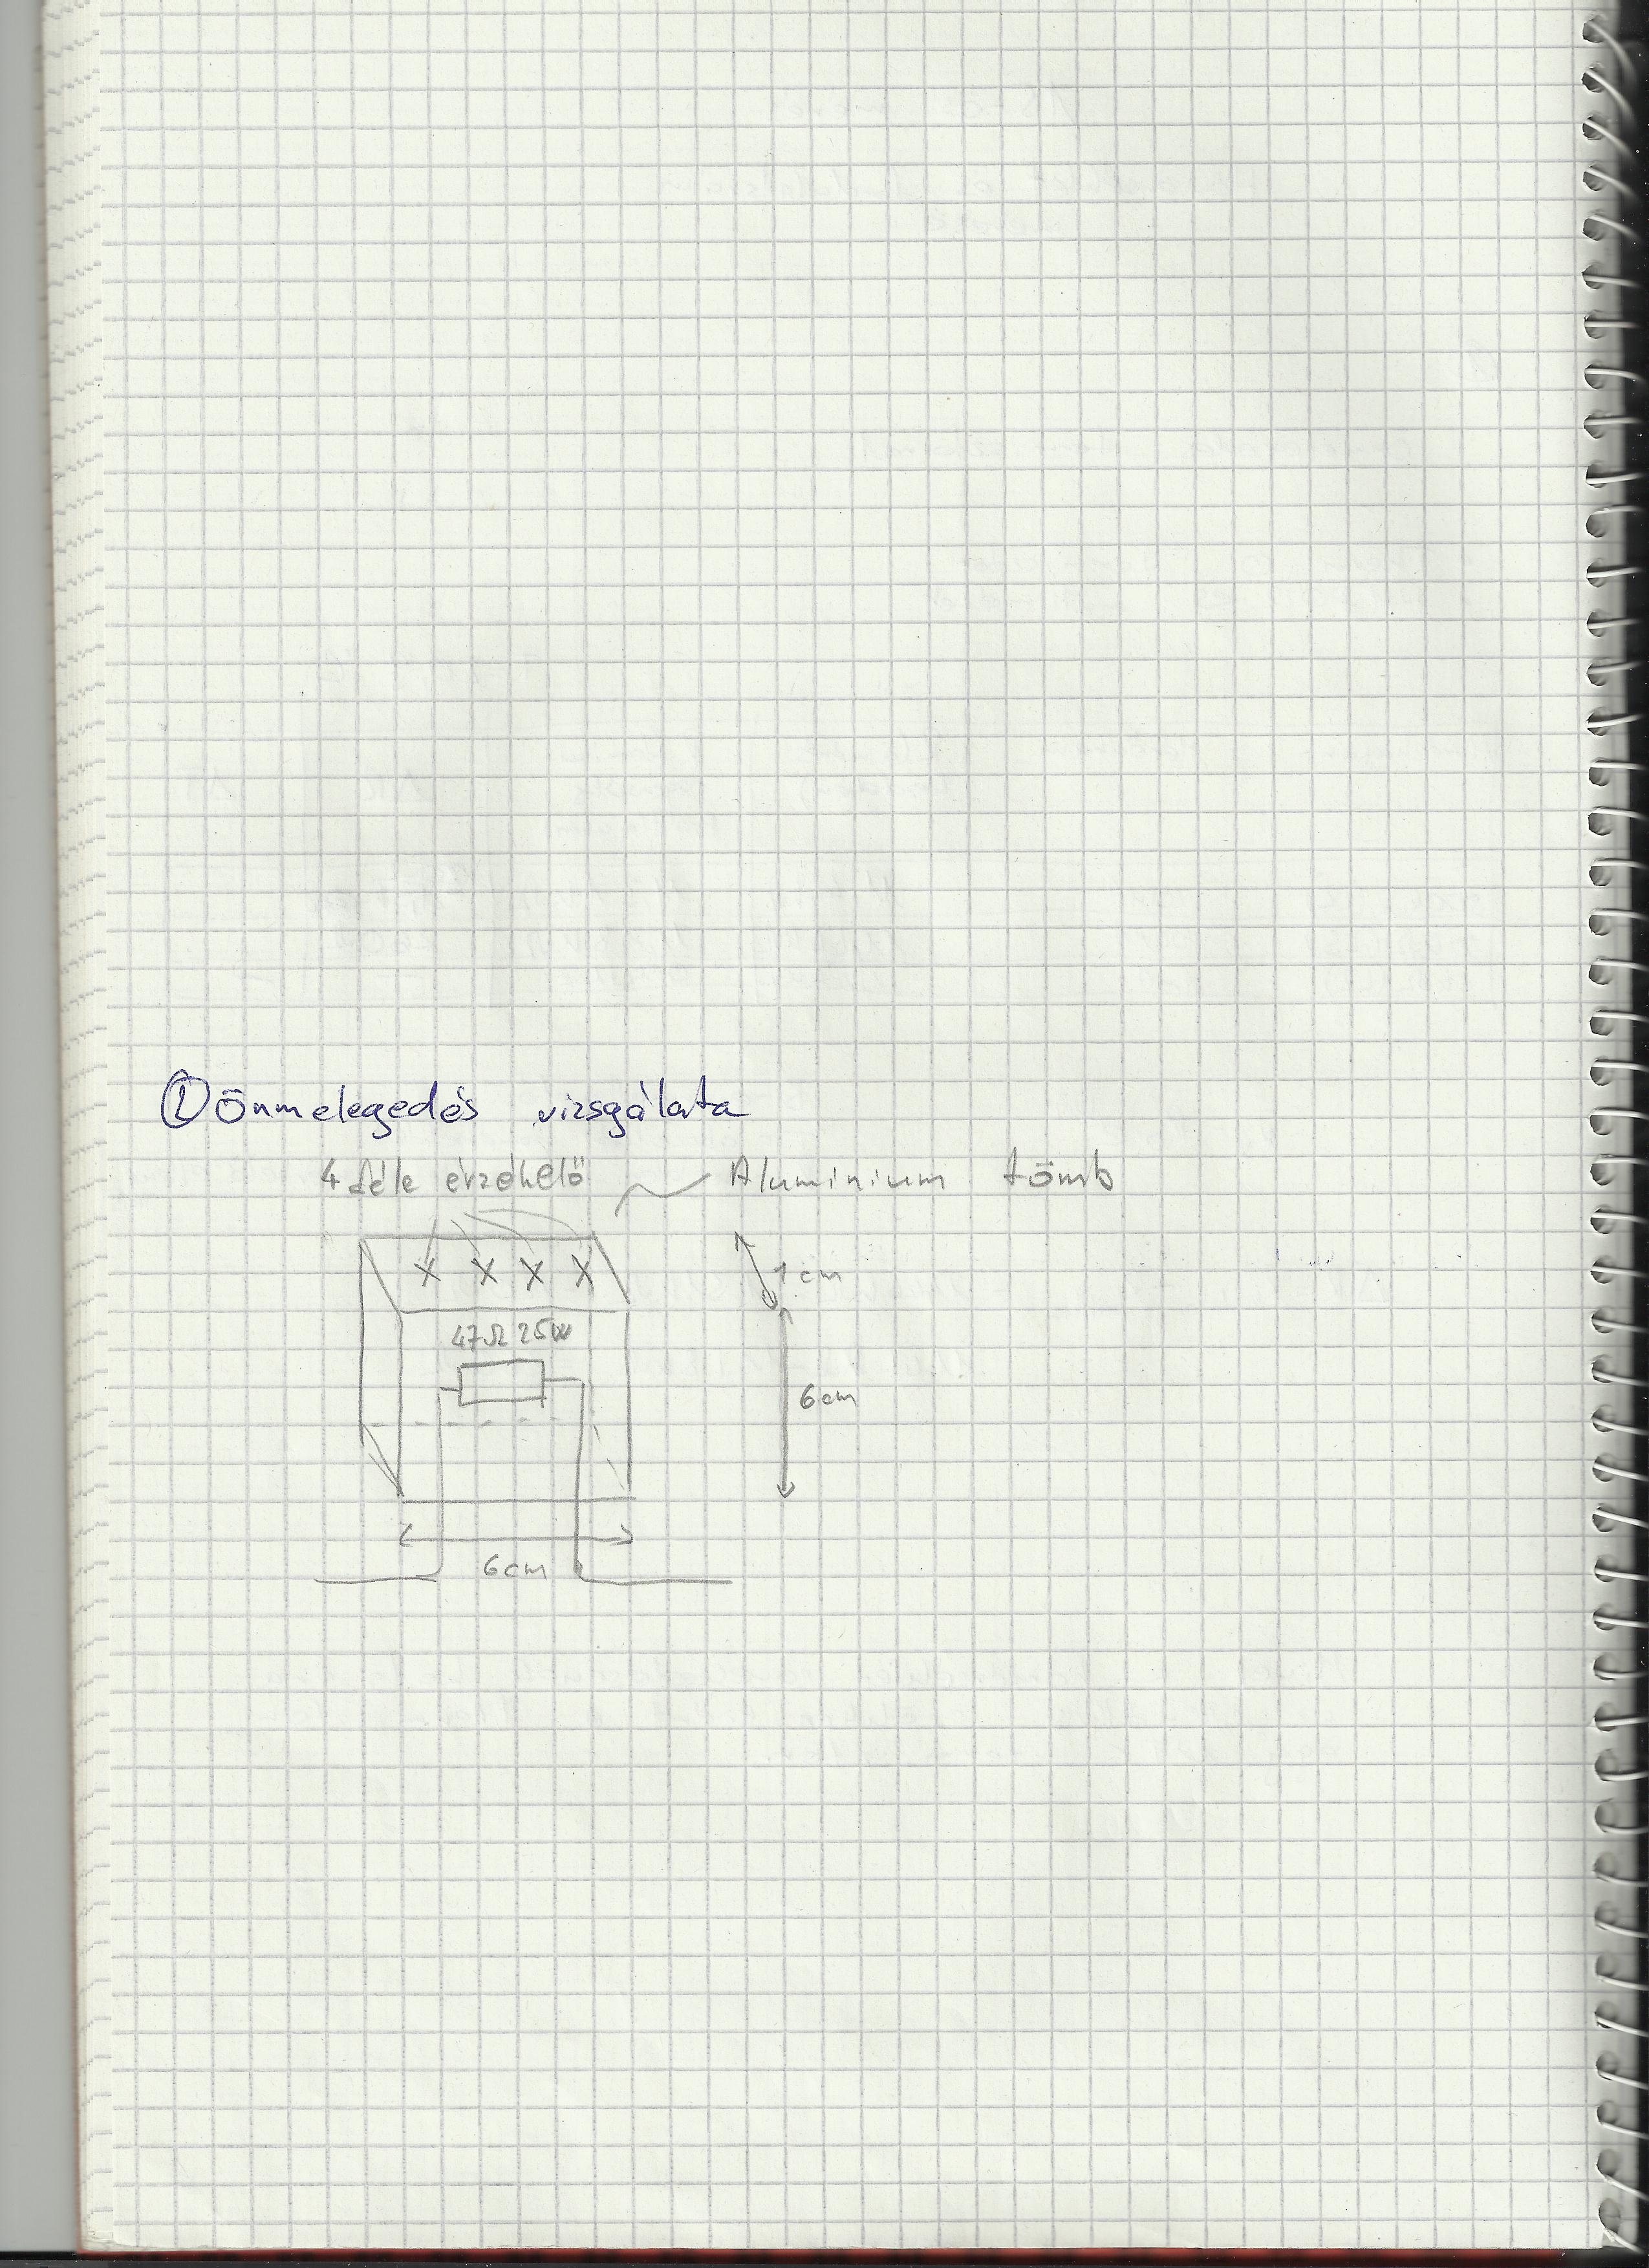 ① Önmelegedés vizsgálata
4 féle érzékelő Alumínium tömb
1 cm
47Ω 25W
6cm
6cm